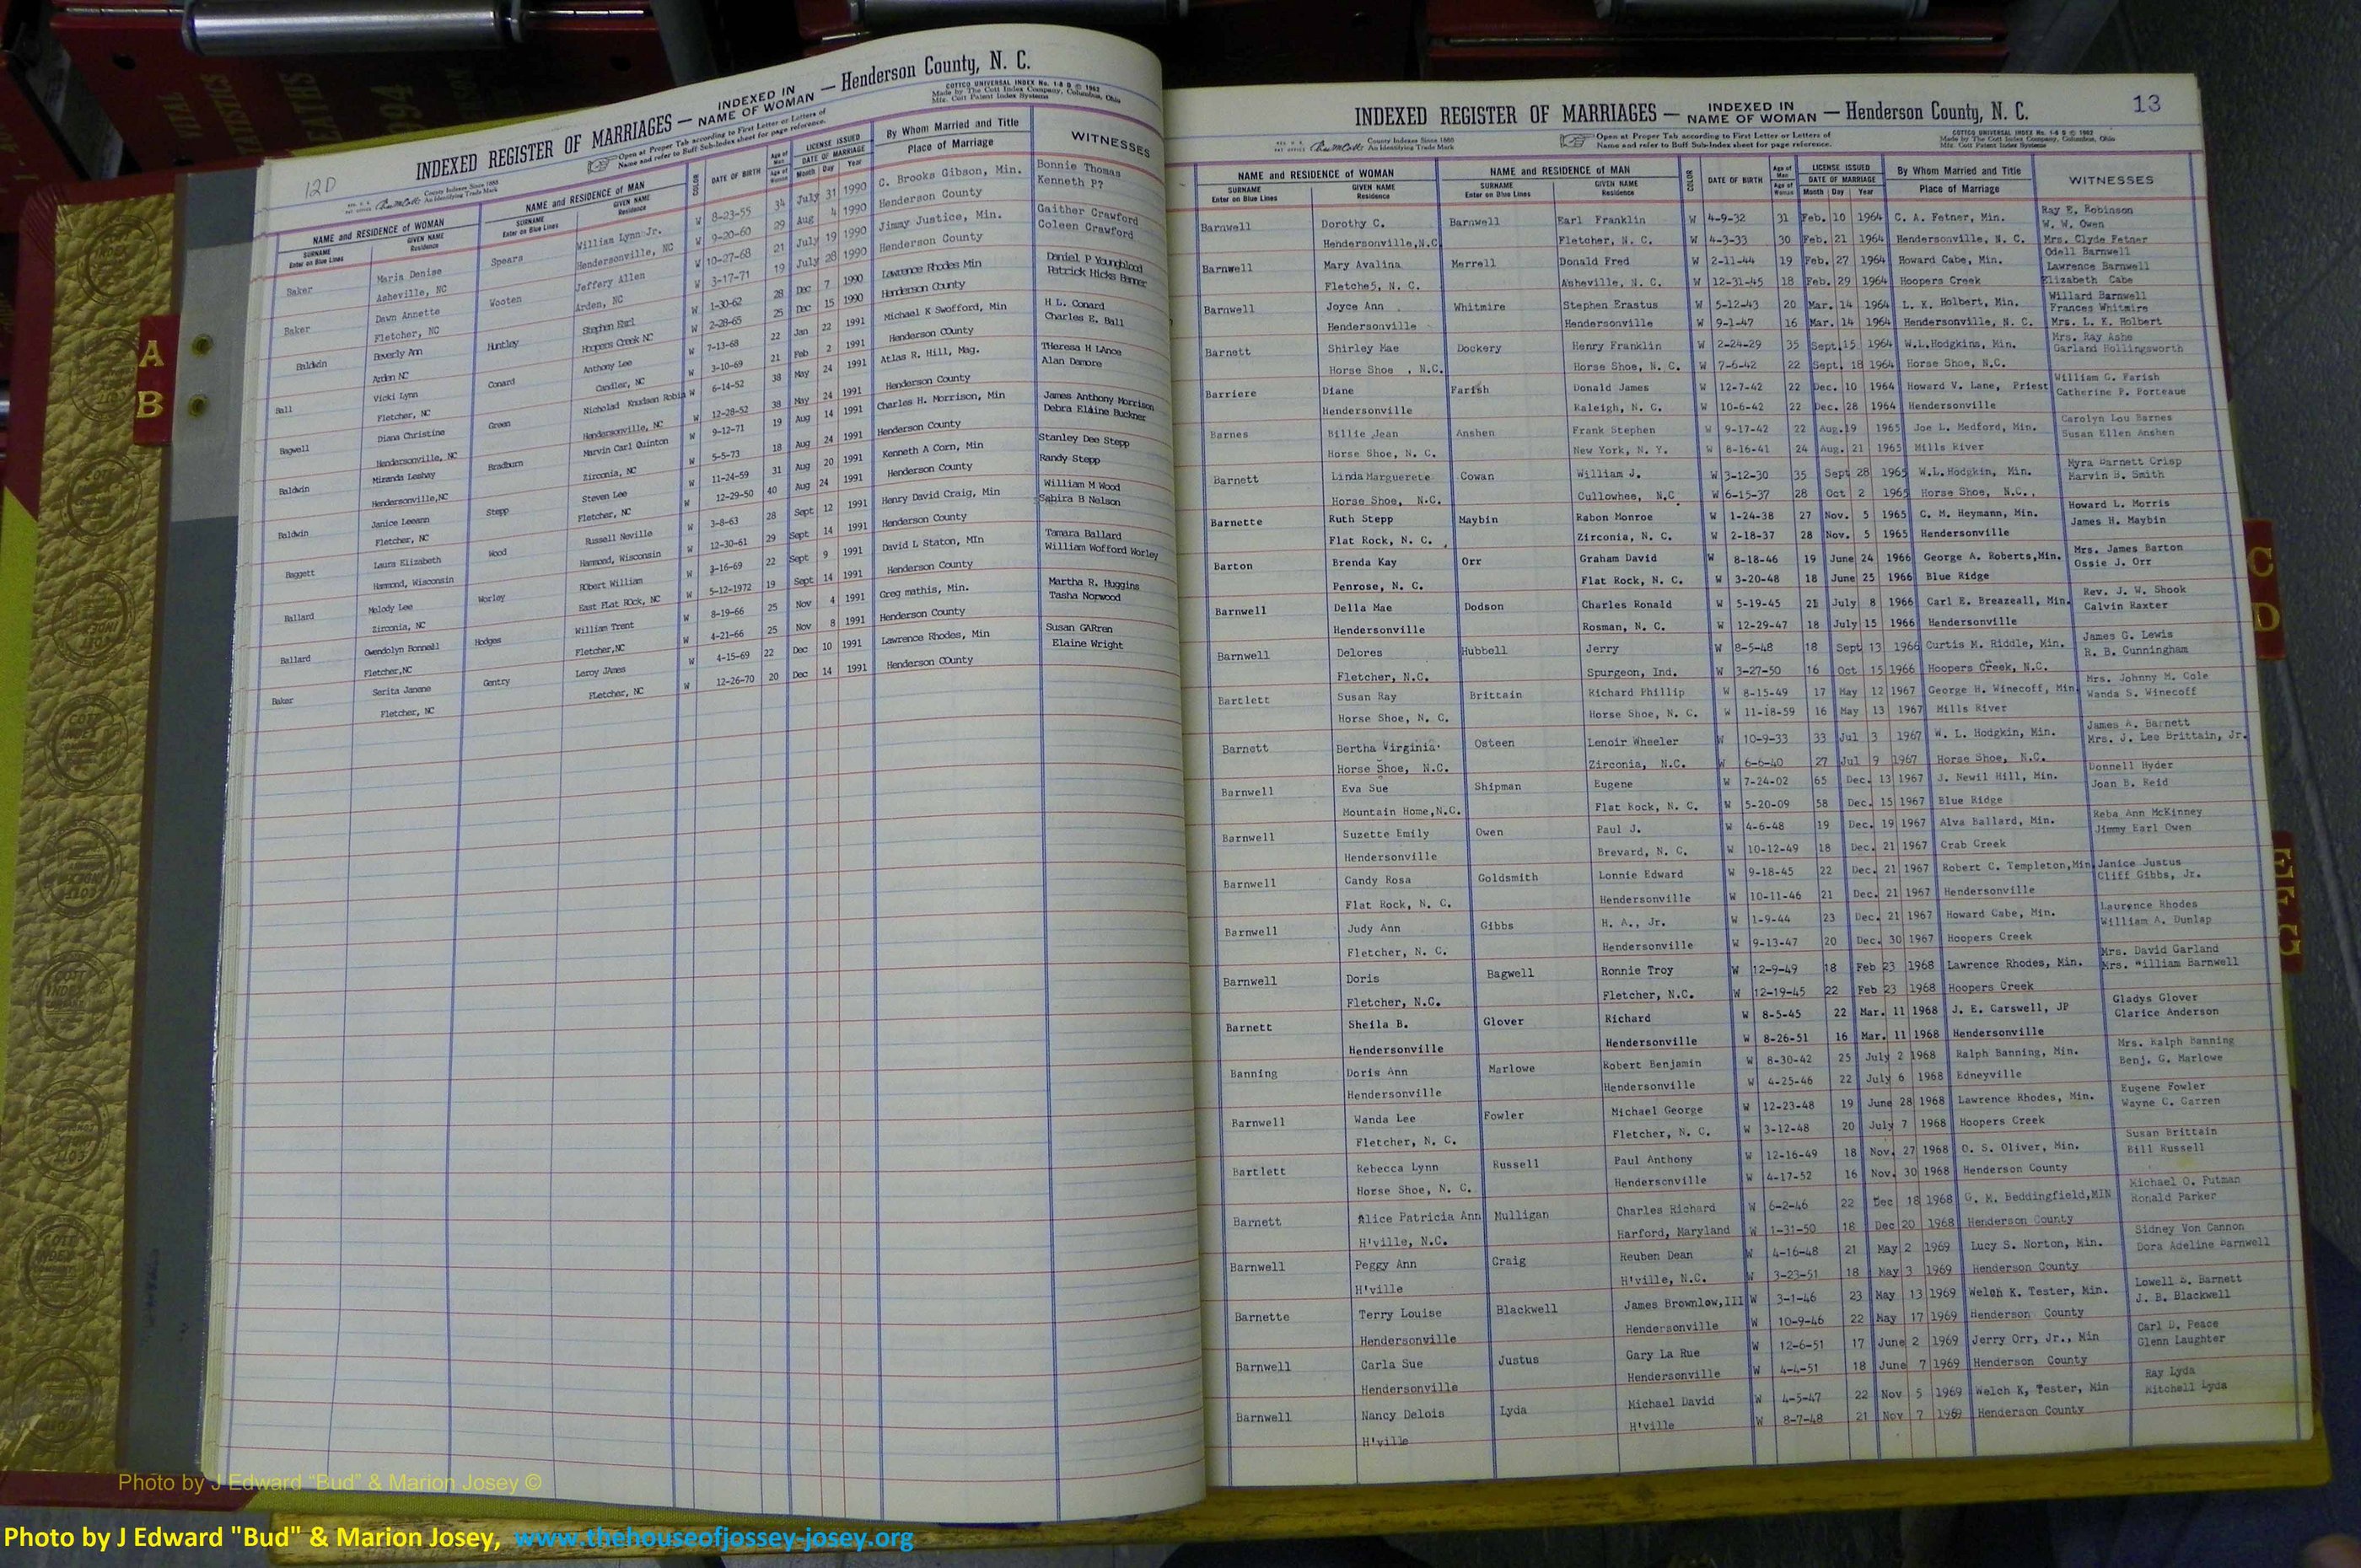 12D
INDEXED REGISTER OF MARRIAGES — INDEXED IN NAME OF WOMAN — Henderson County, N. C.
County Indexes Since 1888
An Identifying Trade Mark
Open at Proper Tab according to First Letter or Letters of
Name and refer to Buff Sub-Index sheet for page reference.
COTTCO UNIVERSAL INDEX No. 1-5 B © 1962
Made by The Cott Index Company, Columbus, Ohio
Mfg. Cott Patent Index Systems
NAME and RESIDENCE OF WOMAN NAME and RESIDENCE OF MAN COLOR DATE OF BIRTH Age of Man Age of Woman LICENSE ISSUED DATE OF MARRIAGE By Whom Married and Title Place of Marriage WITNESSES
SURNAME Enter on Blue Lines GIVEN NAME Residence SURNAME Enter on Blue Lines GIVEN NAME Residence Month Day Year
Baker Maria Denise Spears William Lynn Jr. W 8-23-55 34 July 31 1990 C. Brooks Gibson, Min. Bonnie Thomas
Asheville, NC Hendersonville, NC W 9-20-60 29 Aug 4 1990 Henderson County Kenneth P?
Baker Dawn Annette Wooten Jeffery Allen W 10-27-68 21 July 19 1990 Jimmy Justice, Min. Gaither Crawford
Fletcher, NC Arden, NC W 3-17-71 19 July 28 1990 Henderson County Coleen Crawford
Baldwin Beverly Ann Huntley Stephen Earl W 1-30-62 28 Dec 7 1990 Lawrence Rhodes Min Daniel P Youngblood
Arden NC Hoopers Creek NC W 2-28-65 25 Dec 15 1990 Henderson County Patrick Hicks Benner
Ball Vicki Lynn Conard Anthony Lee W 7-13-68 22 Jan 22 1991 Michael K Swofford, Min H L. Conard
Fletcher, NC Candler, NC W 3-10-69 21 Feb 2 1991 Henderson COunty Charles E. Ball
Bagwell Diana Christine Green Nicholad Knudson Robin W 6-14-52 38 May 24 1991 Atlas R. Hill, Mag. THeresa H LAnce
Hendersonville, NC Hendersonville, NC W 12-28-52 38 May 24 1991 Henderson County Alan Damore
Baldwin Miranda Leshay Bradburn Marvin Carl Quinton W 9-12-71 19 Aug 14 1991 Charles H. Morrison, Min James Anthony Morrison
Hendersonville,NC Zirconia, NC W 5-5-73 18 Aug 24 1991 Henderson County Debra Elaine Buckner
Baldwin Janice Leeann Stepp Steven Lee W 11-24-59 31 Aug 20 1991 Kenneth A Corn, Min Stanley Dee Stepp
Fletcher, NC Fletcher, NC W 12-29-50 40 Aug 24 1991 Henderson County Randy Stepp
Baggett Laura Elizabeth Wood Russell Neville W 3-8-63 28 Sept 12 1991 Henry David Craig, Min William M Wood
Hammond, Wisconsin Hammond, Wisconsin W 12-30-61 29 Sept 14 1991 Henderson County Sahira B Nelson
Ballard Melody Lee Worley RObert William W 3-16-69 22 Sept 9 1991 David L Staton, MIn Tamara Ballard
Zirconia, NC East Flat ROck, NC W 5-12-1972 19 Sept 14 1991 Henderson County William Wofford Worley
Ballard Gwendolyn Bonnell Hodges William Trent W 8-19-66 25 Nov 4 1991 Greg mathis, Min. Martha R. Huggins
Fletcher,NC Fletcher,NC W 4-21-66 25 Nov 8 1991 Henderson County Tasha Norwood
Baker Serita Janene Gentry Leroy JAmes W 4-15-69 22 Dec 10 1991 Lawrence Rhodes, Min Susan GARren
Fletcher, NC Fletcher, NC W 12-26-70 20 Dec 14 1991 Henderson COunty Elaine Wright
13
INDEXED REGISTER OF MARRIAGES — INDEXED IN NAME OF WOMAN — Henderson County, N. C.
County Indexes Since 1888
An Identifying Trade Mark
Open at Proper Tab according to First Letter or Letters of
Name and refer to Buff Sub-Index sheet for page reference.
COTTCO UNIVERSAL INDEX No. 1-5 B © 1962
Made by The Cott Index Company, Columbus, Ohio
Mfg. Cott Patent Index Systems
NAME and RESIDENCE OF WOMAN NAME and RESIDENCE OF MAN COLOR DATE OF BIRTH Age of Man Age of Woman LICENSE ISSUED DATE OF MARRIAGE By Whom Married and Title Place of Marriage WITNESSES
SURNAME Enter on Blue Lines GIVEN NAME Residence SURNAME Enter on Blue Lines GIVEN NAME Residence Month Day Year
Barnwell Dorothy C. Barnwell Earl Franklin W 4-9-32 31 Feb. 10 1964 C. A. Fetner, Min. Ray E. Robinson W. W. Owen
Hendersonville,N.C Fletcher, N. C. W 4-3-33 30 Feb. 21 1964 Hendersonville, N. C. Mrs. Clyde Fetner
Barnwell Mary Avalina Merrell Donald Fred W 2-11-44 19 Feb. 27 1964 Howard Cabe, Min. Odell Barnwell Lawrence Barnwell
Fletche5, N. C. Asheville, N. C. W 12-31-45 18 Feb. 29 1964 Hoopers Creek Elizabeth Cabe
Barnwell Joyce Ann Whitmire Stephen Erastus W 5-12-43 20 Mar. 14 1964 L. K. Holbert, Min. Willard Barnwell Frances Whitmire
Hendersonville Hendersonville W 9-1-47 16 Mar. 14 1964 Hendersonville, N. C. Mrs. L. K. Holbert
Barnett Shirley Mae Dockery Henry Franklin W 2-24-29 35 Sept.15 1964 W.L.Hodgkins, Min. Mrs. Ray Ashe Garland Hollingsworth
Horse Shoe , N.C. Horse Shoe, N. C. W 7-6-42 22 Sept. 18 1964 Horse Shoe, N.C.
Barriere Diane Farish Donald James W 12-7-42 22 Dec. 10 1964 Howard V. Lane, Priest William G. Farish
Hendersonville Raleigh, N. C. W 10-6-42 22 Dec. 28 1964 Hendersonville Catherine P. Porteaue
Barnes Billie Jean Anshen Frank Stephen W 9-17-42 22 Aug.19 1965 Joe L. Medford, Min. Carolyn Lou Barnes
Horse Shoe, N. C. New York, N. Y. W 8-16-41 24 Aug. 21 1965 Mills River Susan Ellen Anshen
Barnett Linda Marguerete Cowan William J. W 3-12-30 35 Sept 28 1965 W.L.Hodgkin, Min. Myra Barnett Crisp
Horse Shoe, N.C. Cullowhee, N.C W 6-15-37 28 Oct 2 1965 Horse Shoe, N.C. Marvin B. Smith
Barnette Ruth Stepp Maybin Rabon Monroe W 1-24-38 27 Nov. 5 1965 C. M. Heymann, Min. Howard L. Morris
Flat Rock, N. C. Zirconia, N. C. W 2-18-37 28 Nov. 5 1965 Hendersonville James H. Maybin
Barton Brenda Kay Orr Graham David W 8-18-46 19 June 24 1966 George A. Roberts,Min. Mrs. James Barton
Penrose, N. C. Flat Rock, N. C. W 3-20-48 18 June 25 1966 Blue Ridge Ossie J. Orr
Barnwell Della Mae Dodson Charles Ronald W 5-19-45 21 July 8 1966 Carl E. Breazeall, Min. Rev. J. W. Shook
Hendersonville Rosman, N. C. W 12-29-47 18 July 15 1966 Hendersonville Calvin Raxter
Barnwell Delores Hubbell Jerry W 8-5-48 18 Sept 13 1966 Curtis M. Riddle, Min. James G. Lewis
Fletcher, N.C. Spurgeon, Ind. W 3-27-50 16 Oct 15 1966 Hoopers Creek, N.C. R. B. Cunningham
Bartlett Susan Ray Brittain Richard Phillip W 8-15-49 17 May 12 1967 George H. Winecoff, Min Mrs. Johnny M. Cole
Horse Shoe, N. C. Horse Shoe, N. C. W 11-18-59 16 May 13 1967 Mills River Wanda S. Winecoff
Barnett Bertha Virginia Osteen Lenoir Wheeler W 10-9-33 33 Jul 3 1967 W. L. Hodgkin, Min. James A. Barnett
Horse Shoe, N.C. Zirconia, N.C. W 6-6-40 27 Jul 9 1967 Horse Shoe, N.C. Mrs. J. Lee Brittain, Jr.
Barnwell Eva Sue Shipman Eugene W 7-24-02 65 Dec. 13 1967 J. Newil Hill, Min. Donnell Hyder
Mountain Home,N.C. Flat Rock, N. C. W 5-20-09 58 Dec. 15 1967 Blue Ridge Joan B. Reid
Barnwell Suzette Emily Owen Paul J. W 4-6-48 19 Dec. 19 1967 Alva Ballard, Min. Reba Ann McKinney
Hendersonville Brevard, N. C. W 10-12-49 18 Dec. 21 1967 Crab Creek Jimmy Earl Owen
Barnwell Candy Rosa Goldsmith Lonnie Edward W 9-18-45 22 Dec. 21 1967 Robert C. Templeton,Min Janice Justus
Flat Rock, N. C. Hendersonville W 10-11-46 21 Dec. 21 1967 Hendersonville Cliff Gibbs, Jr.
Barnwell Judy Ann Gibbs H. A., Jr. W 1-9-44 23 Dec. 21 1967 Howard Cabe, Min. Laurence Rhodes
Fletcher, N. C. Hendersonville W 9-13-47 20 Dec. 30 1967 Hoopers Creek William A. Dunlap
Barnwell Doris Bagwell Ronnie Troy W 12-9-49 18 Feb 23 1968 Lawrence Rhodes, Min. Mrs. David Garland
Fletcher, N.C. Fletcher, N.C. W 12-19-45 22 Feb 23 1968 Hoopers Creek Mrs. William Barnwell
Barnett Sheila B. Glover Richard W 8-5-45 22 Mar. 11 1968 J. E. Carswell, JP Gladys Glover
Hendersonville Hendersonville W 8-26-51 16 Mar. 11 1968 Hendersonville Clarice Anderson
Banning Doris Ann Marlowe Robert Benjamin W 8-30-42 25 July 2 1968 Ralph Banning, Min. Mrs. Ralph Banning
Hendersonville Hendersonville W 4-25-46 22 July 6 1968 Edneyville Benj. G. Marlowe
Barnwell Wanda Lee Fowler Michael George W 12-23-48 19 June 28 1968 Lawrence Rhodes, Min. Eugene Fowler
Fletcher, N. C. Fletcher, N. C. W 3-12-48 20 July 7 1968 Hoopers Creek Wayne C. Garren
Bartlett Rebecca Lynn Russell Paul Anthony W 12-16-49 18 Nov. 27 1968 O. S. Oliver, Min. Susan Brittain
Horse Shoe, N. C. Hendersonville W 4-17-52 16 Nov. 30 1968 Henderson County Bill Russell
Barnett Alice Patricia Ann Mulligan Charles Richard W 6-2-46 22 Dec 18 1968 G. M. Beddingfield,MIN Michael O. Putman
H'ville, N.C. Harford, Maryland W 1-31-50 18 Dec 20 1968 Henderson County Ronald Parker
Barnwell Peggy Ann Craig Reuben Dean W 4-16-48 21 May 2 1969 Lucy S. Norton, Min. Sidney Von Cannon
H'ville H'ville, N.C. W 3-23-51 18 May 3 1969 Henderson County Dora Adeline Barnwell
Barnette Terry Louise Blackwell James Brownlow,III W 3-1-46 23 May 13 1969 Welch K. Tester, Min. Lowell S. Barnett
Hendersonville Hendersonville W 10-9-46 22 May 17 1969 Henderson County J. B. Blackwell
Barnwell Carla Sue Justus Gary La Rue W 12-6-51 17 June 2 1969 Jerry Orr, Jr., Min Carl D. Peace
Hendersonville Hendersonville W 4-4-51 18 June 7 1969 Henderson County Glenn Laughter
Barnwell Nancy Delois Lyda Michael David W 4-5-47 22 Nov 5 1969 Welch K, Tester, Min Ray Lyda
H'ville H'ville W 8-7-48 21 Nov 7 1969 Henderson County Mitchell Lyda
A
B
C
D
E
F
G
Photo by J Edward "Bud" & Marion Josey ©
Photo by J Edward "Bud" & Marion Josey, www.thehouseofjossey-josey.org